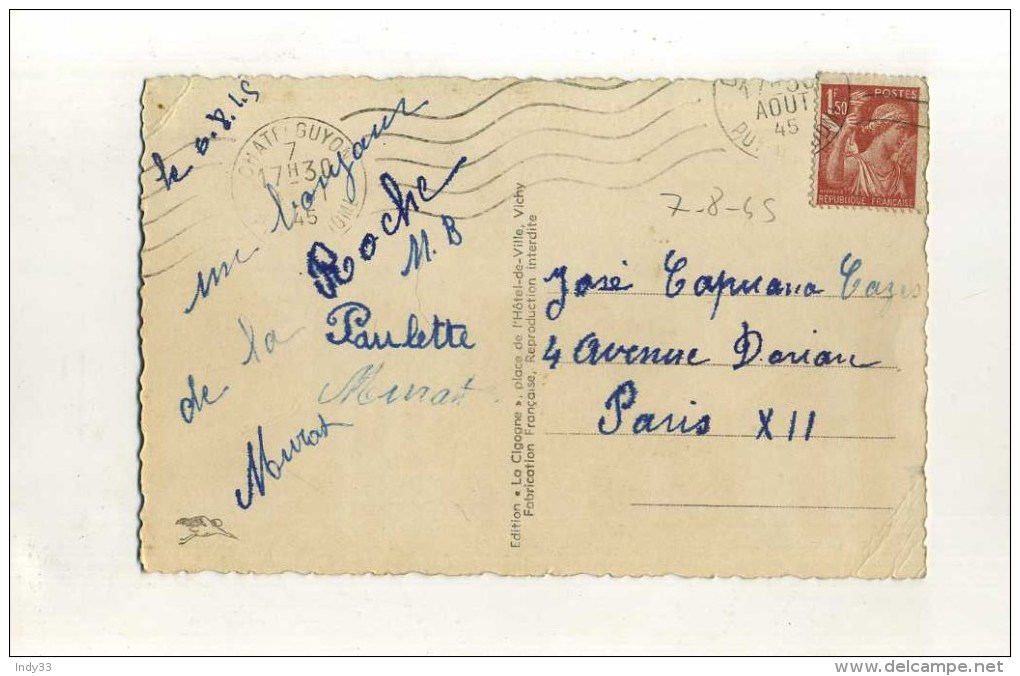 le 6.8.45
un bonjour
de la
Murat
Roche
M.B
Paulette
Murat
CHATEL GUYON
7
17H30
45
Edition « La Cigogne », place de l'Hôtel-de-Ville, Vichy
Fabrication Française, Reproduction interdite
AOUT
45
PUY
1F
50
POSTES
RÉPUBLIQUE FRANÇAISE
7-8-45
José Capuana Cazes
4 Avenue Dorian
Paris XII
Indy33
www.delcampe.net